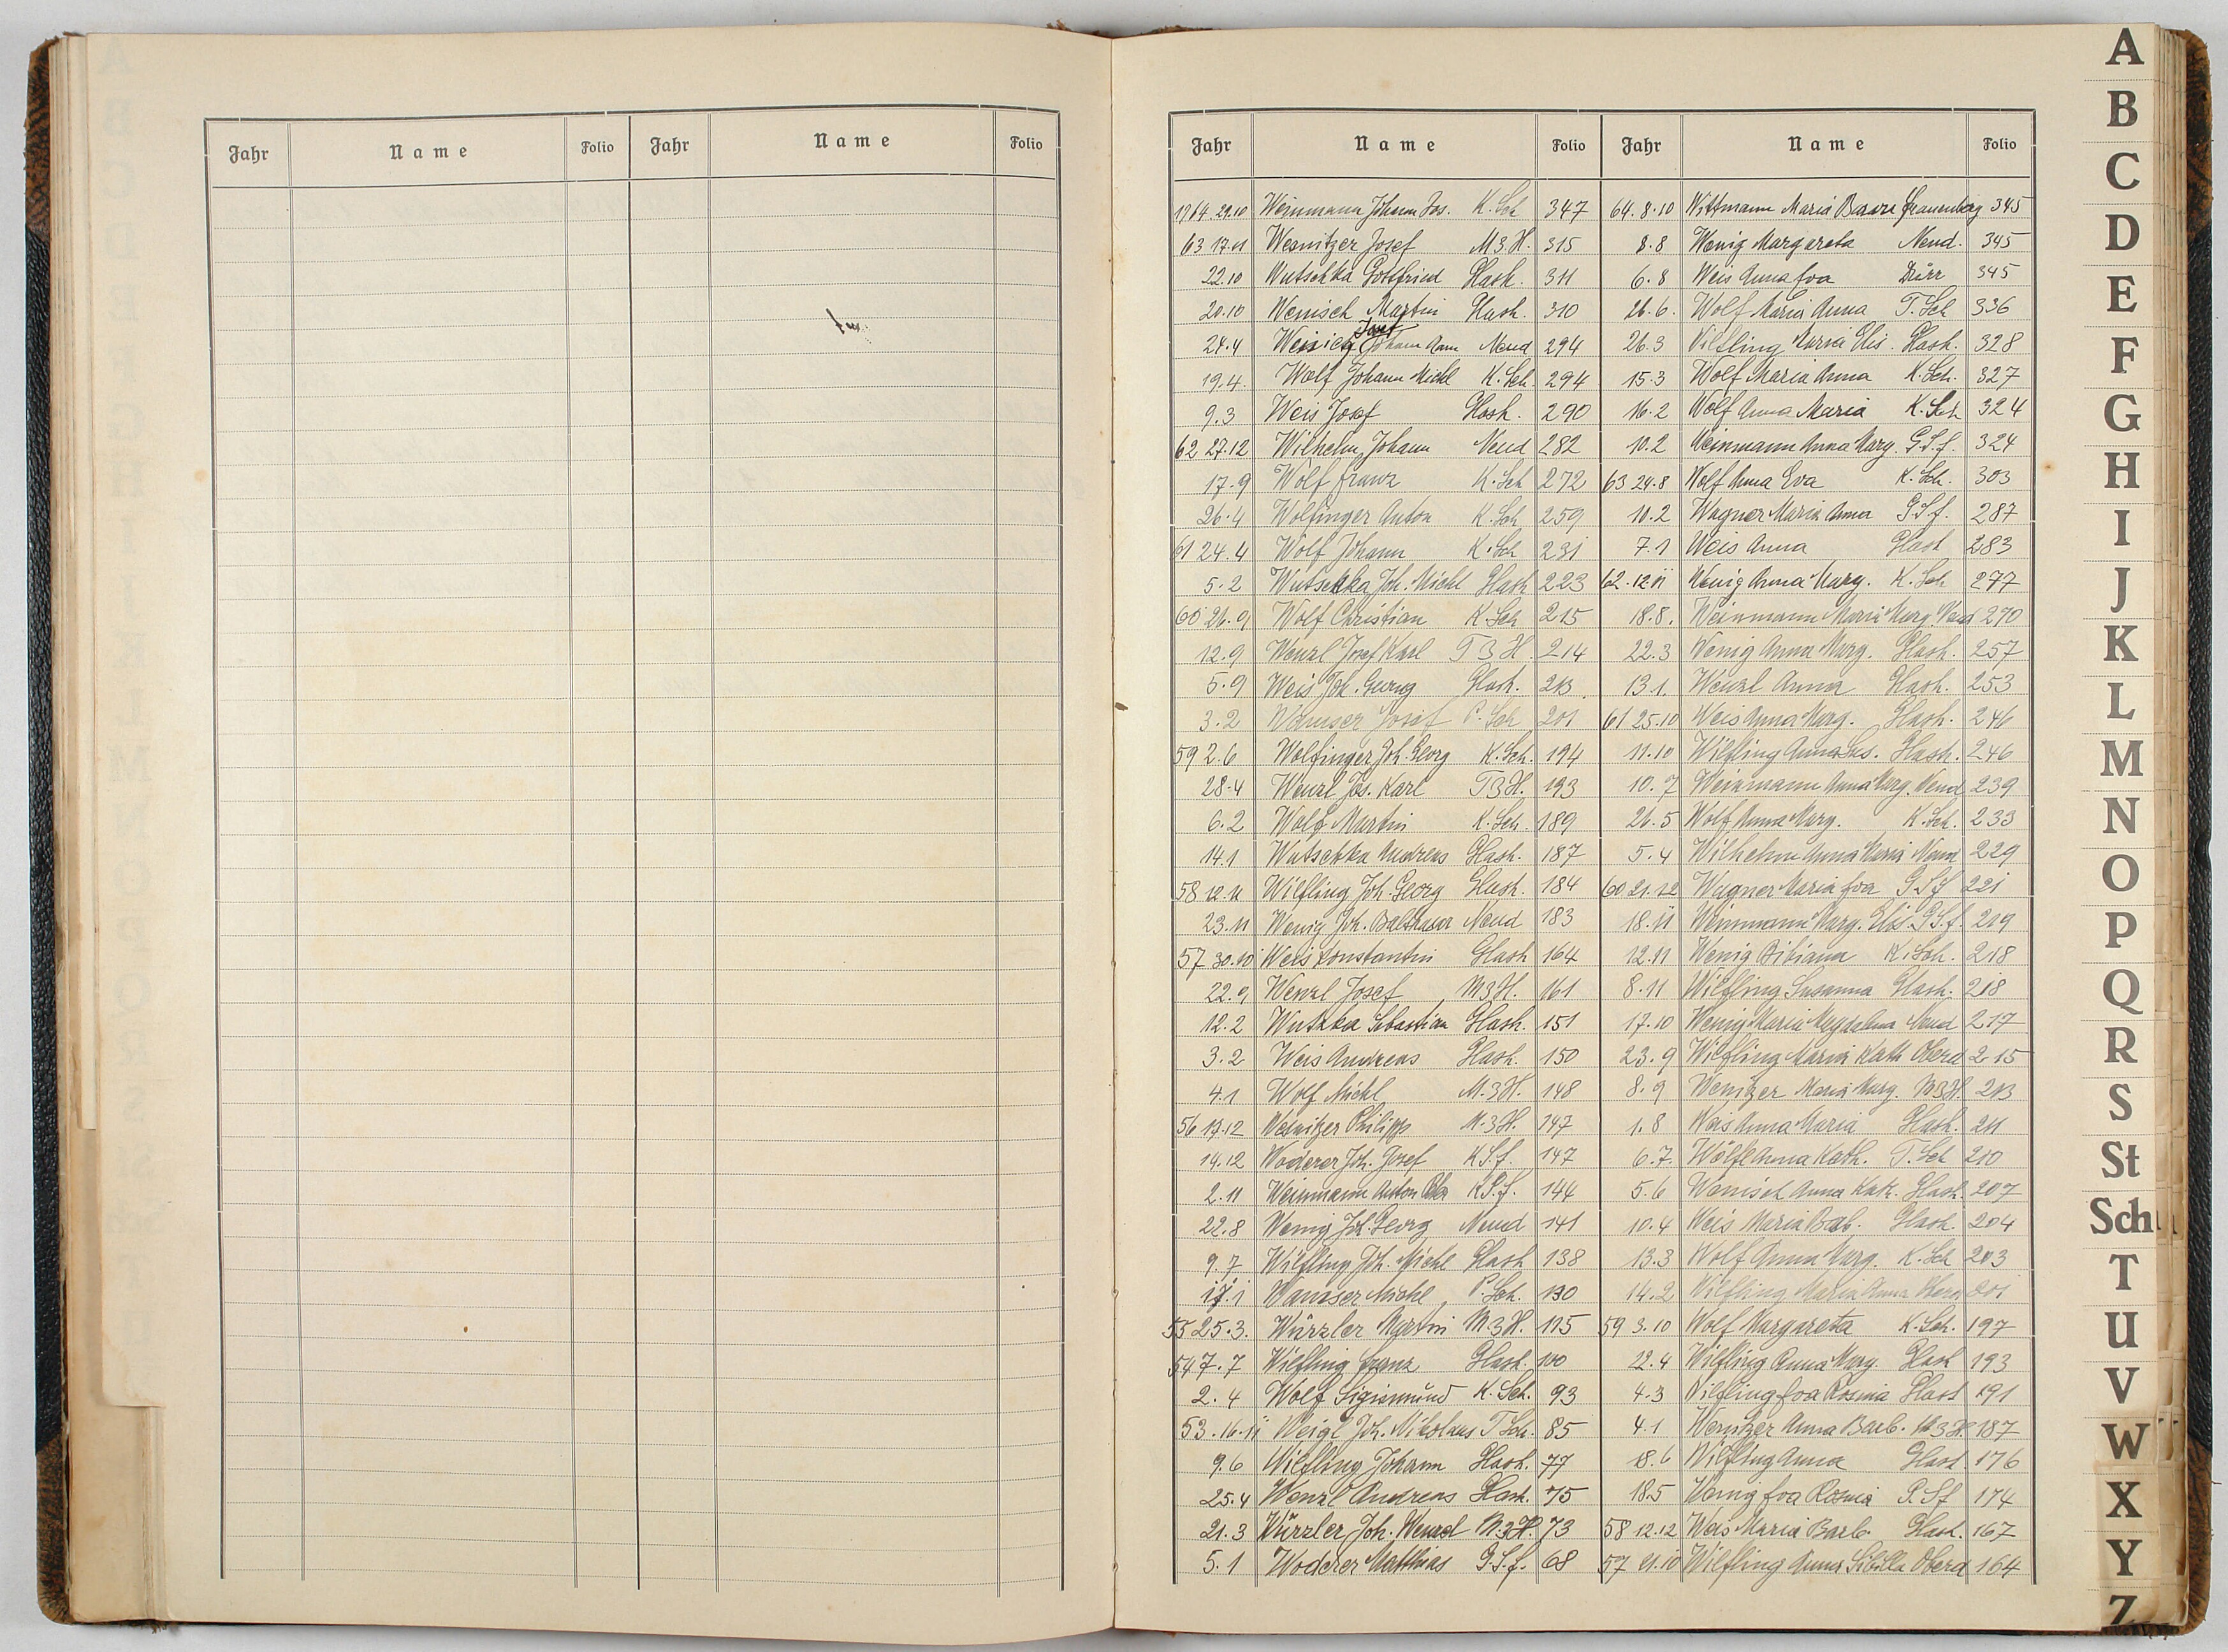 Jahr Name Folio Jahr Name Folio
Jahr Name Folio Jahr Name Folio
1764. 29.10 Weinmann Johann Jos. K. Sch 347
63 17.11 Wesnitzer Josef M3H. 315
22.10 Wutschka Gottfried Glash. 311
20.10 Wenisch Martin Glash. 310
24.4 Josef Johann Neud 294
19.4. Wolf Johann Michl K. Sch. 294
9.3 Weis Josef Glash. 290
62 27.12 Wilhelm Johann Neud 282
17.9 Wolf Franz K. Sch 272
26.4 Wolfinger Anton K. Sch 259
61 24.4 Wolf Johann K. Sch 231
5.2 Wutschka Joh. Michl Glash 223
60 26.9 Wolf Christian K. Sch 215
12.9 Wenzl Josef Karl T3H. 214
5.9 Weis Joh. Georg Glash. 213
3.2 Josef P. Sch 201
59 2.6 Wolfinger Joh. Georg K. Sch. 194
28.4 Wenzl Jos. Karl T3H. 193
6.2 Wolf Martin K. Sch. 189
14.1 Wutschka Andreas Glash. 187
58 12.11 Wilfling Joh. Georg Glash. 184
23.11 Wenig Joh. Balthasar Neud 183
57 30.10 Weis Konstantin Glash 164
22.9 Wenzl Josef M3H. 161
12.2 Wutzka Sebastian Glash. 151
3.2 Weis Andreas Glash. 150
4.1 Wolf Michl M.3H. 148
56 19.12 Wesnitzer Philipp M.3H. 147
14.12 Woderer Joh. Josef K.S.f. 147
2.11 Weinmann Anton K.S.f. 144
22.8 Wenig Joh. Georg Neud 141
9.7 Wilfling Joh. Michl Glash 138
17.1 Michl P. Sch. 130
55 25.3. Würzler Martin M3H. 115
54 7.7 Wilfling Franz Glash. 100
2.4 Wolf Sigismund K. Sch. 93
53. 16.11 Weigl Joh. Nikolaus T Sch. 85
9.6 Wilfling Johann Glash. 77
25.4 Wenzl Andreas Glash. 75
21.3 Würzler Joh. Wenzel M.3H. 73
5.1 Woderer Matthias G.S.f. 68
64. 8.10 Wittmann Maria Frauenberg 345
8.8 Wenig Margareta Neud. 345
6.8 Weis Anna Eva Dürr 345
26.6. Wolf Maria Anna T. Sch 336
26.3 Wilfling Maria Elis. Glash. 328
15.3 Wolf Maria Anna K. Sch. 327
16.2 Wolf Anna Maria K. Sch 324
10.2 Weinmann Anna Marg. G.S.f. 324
63 24.8 Wolf Anna Eva K. Sch. 303
10.2 Wagner Maria Anna G.S.f. 287
7.1 Weis Anna Glash 283
62. 12.11 Wenig Anna Marg. K. Sch 277
18.8. Weinmann Maria Marg. Neud 270
22.3 Wenig Anna Marg. Glash. 257
13.1. Wenzl Anna Glash. 253
61 25.10 Weis Anna Marg. Glash. 246
11.10 Wilfling Anna Sus. Glash. 246
10.7 Weinmann Anna Marg. Neud 239
26.5 Wolf Anna Marg. K. Sch. 233
5.4 Wilhelm Anna Maria Neud 229
60 21.12 Wagner Maria Eva G.S.f 221
18.11 Weinmann Marg. Elis. G.S.f. 219
12.11 Wenig Bibiana K. Sch. 218
8.11 Wilfling Susanna Glash. 218
17.10 Wenig Maria Magdalena Neud 217
23.9 Wilfling Maria Kath Oberd 215
8.9 Wenitzer Maria Marg. M3H. 213
1.8 Weis Anna Maria Glash. 211
6.7. Wölfl Anna Kath. T. Sch 210
5.6 Wenisch Anna Kath. Glash. 207
10.4 Weis Maria Bab. Glash. 204
13.3 Wolf Anna Marg. K. Sch 203
14.2 Wilfling Maria Anna Oberd 201
59 3.10 Wolf Margareta K. Sch. 197
22.4 Wilfling Anna Marg. Glash 193
4.3 Wilfling Eva Rosina Glash 191
4.1 Wenitzer Anna Barb. M3H. 187
18.6 Wilfling Anna Glash. 176
18.5 Wenig Eva Rosina P. Sf 174
58 12.12 Weis Maria Barb. Glash. 167
57 21.10 Wilfling Anna Sibilla Oberd 164
A
B
C
D
E
F
G
H
I
J
K
L
M
N
O
P
Q
R
S
St
Sch
T
U
V
W
X
Y
Z